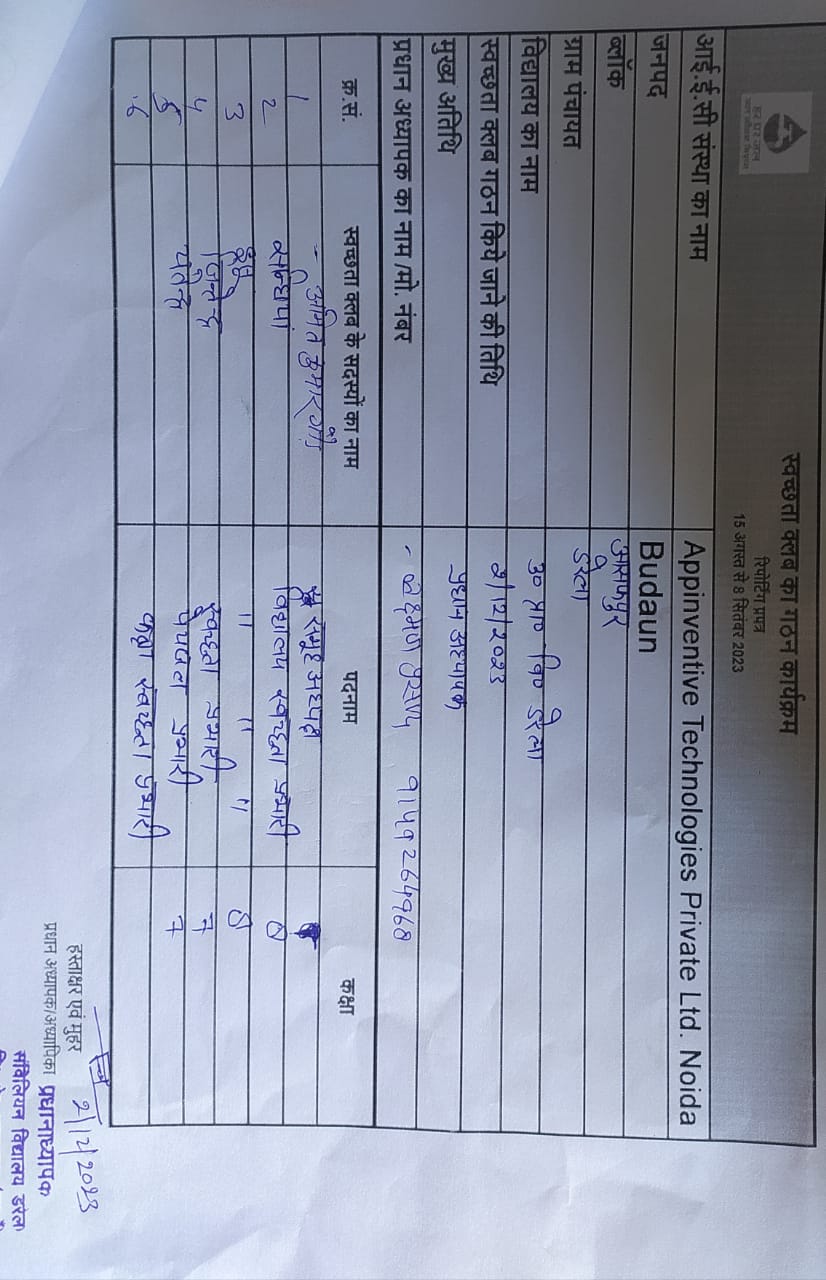 हर घर जल
जल जीवन मिशन
स्वच्छता क्लब का गठन कार्यक्रम
रिपोर्टिंग प्रपत्र
15 अगस्त से 8 सितंबर 2023
आई.ई.सी संस्था का नाम Appinventive Technologies Private Ltd. Noida
जनपद Budaun
ब्लॉक आसफपुर
ग्राम पंचायत डरेला
विद्यालय का नाम उ० प्रा० वि० डरेला
स्वच्छता क्लब गठन किये जाने की तिथि 2/12/2023
मुख्य अतिथि प्रधान अध्यापक
प्रधान अध्यापक का नाम /मो. नंबर - लक्ष्मण प्रसाद
क्र.सं. स्वच्छता क्लब के सदस्यों का नाम पदनाम कक्षा
1 - अमित कुमार समूह अध्यक्ष
2 विद्यालय स्वच्छता प्रभारी 8
3 " " " 8
4 स्वच्छता प्रभारी 7
5 पेयजल प्रभारी 7
6 कक्षा स्वच्छता प्रभारी
2/12/2023
हस्ताक्षर एवं मुहर
प्रधान अध्यापक/अध्यापिका प्रधानाध्यापक
संविलियन विद्यालय डरेला